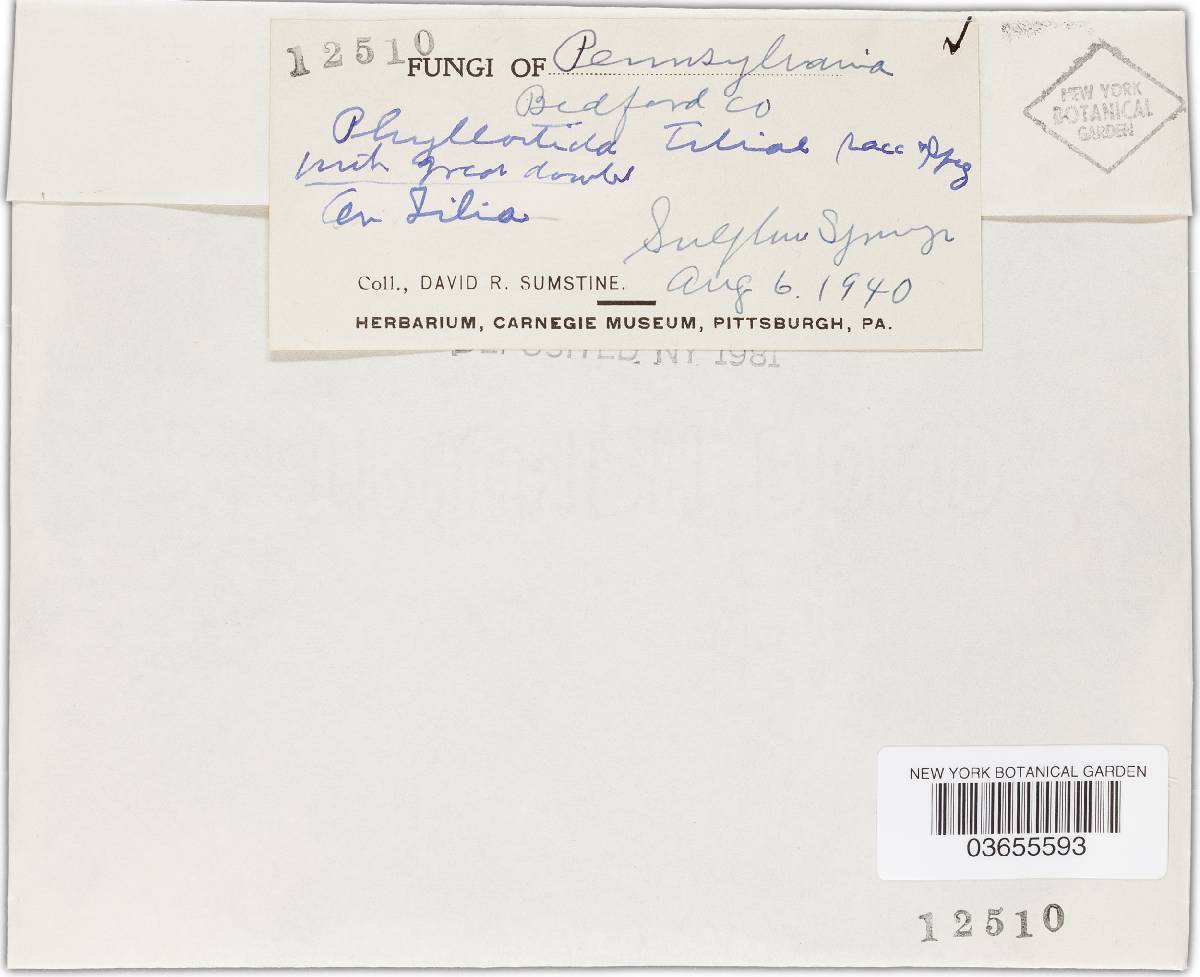 12510
FUNGI OF Pennsylvania
Bedford Co
Phyllosticta Tiliae Sacc & Speg
with great doubt
On Tilia
Sulphur Springs
Coll., DAVID R. SUMSTINE. Aug 6. 1940
HERBARIUM, CARNEGIE MUSEUM, PITTSBURGH, PA.
DEPOSITED NY 1981
NEW YORK
BOTANICAL
GARDEN
NEW YORK BOTANICAL GARDEN
03655593
12510